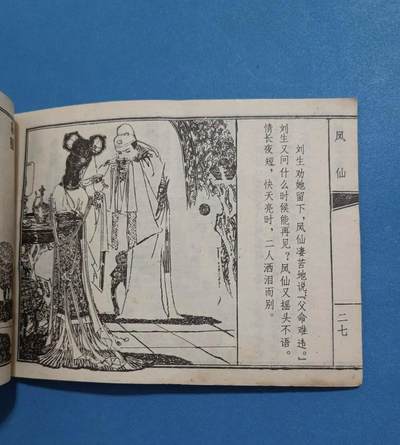 凤仙
刘生劝她留下，凤仙凄苦地说“父命难违。”
刘生又问什么时候能再见？凤仙又摇头不语。
情长夜短，快天亮时，二人洒泪而别。
二七